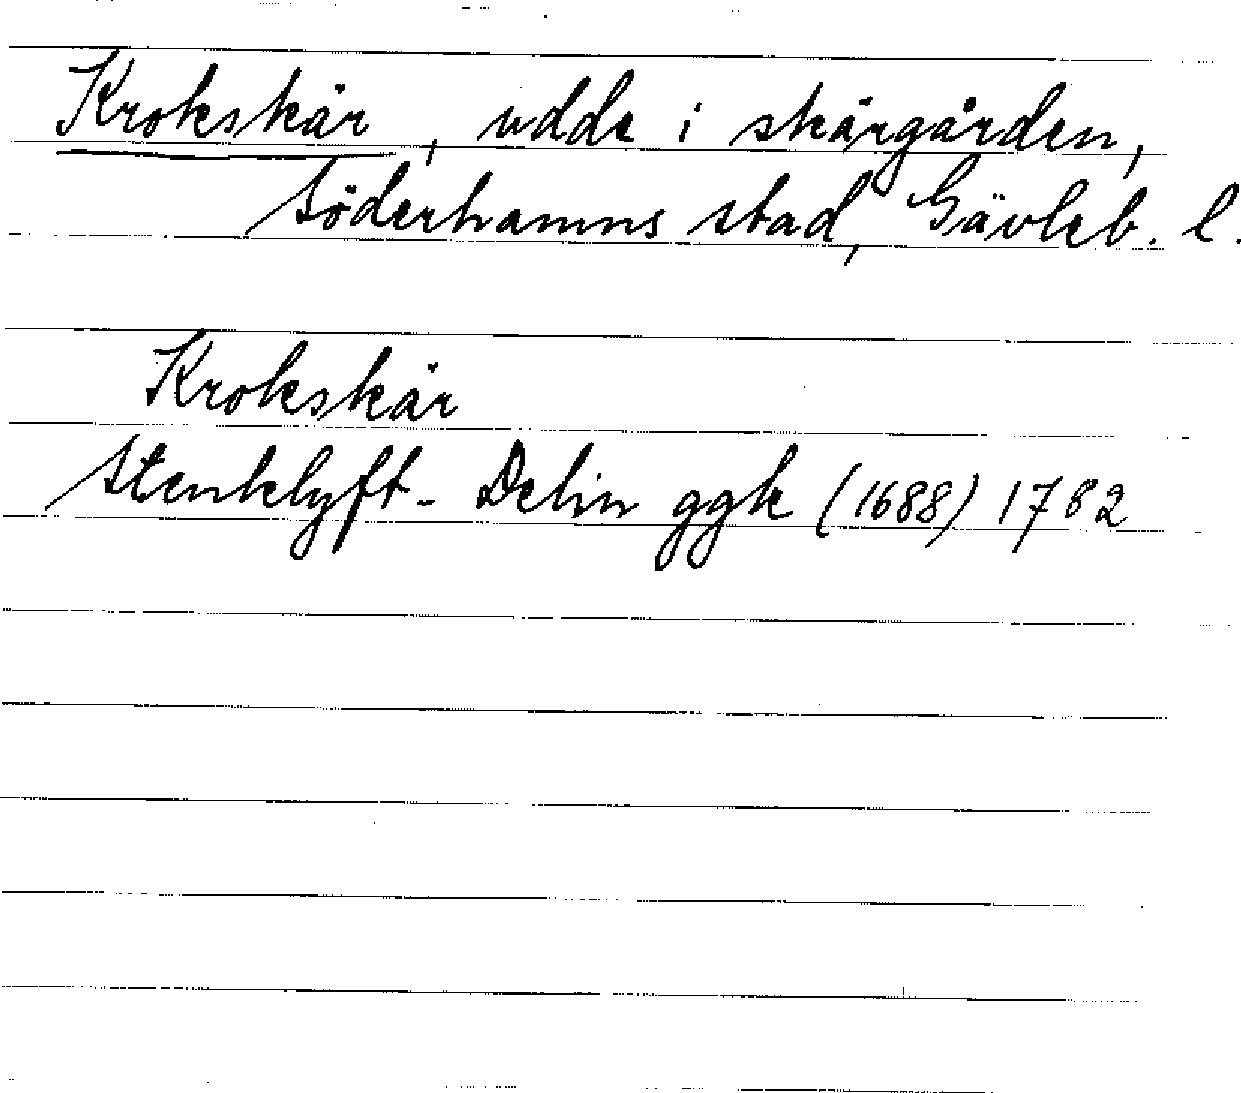 Krokskär, udde i skärgården,
Söderhamns stad, Gävleb. l.
Krokskär
Stenklyft - Delin ggk (1688) 1782